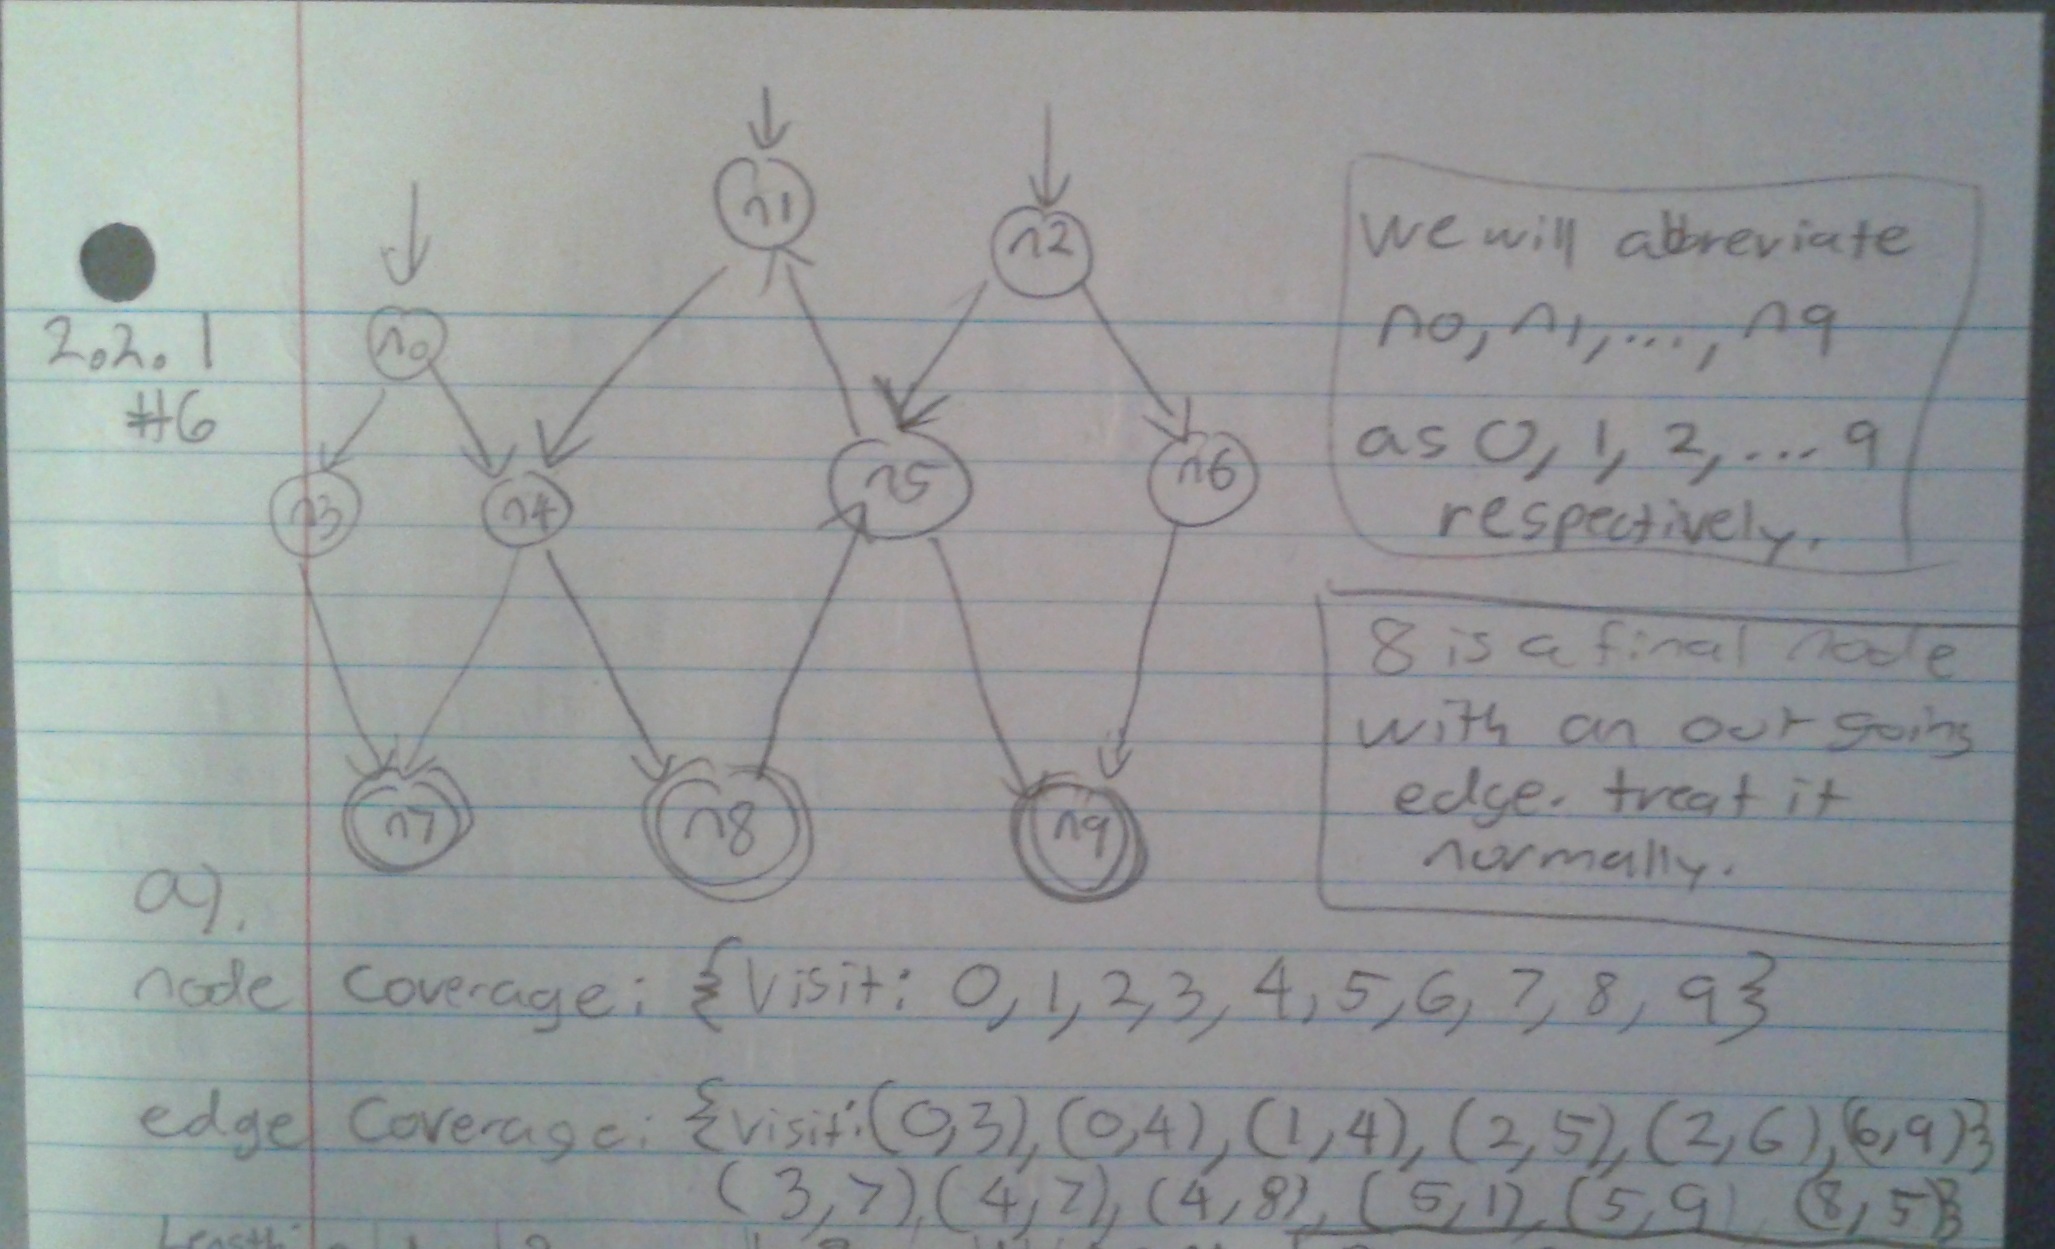 2.2.1
#6
n0
n1
n2
n3
n4
n5
n6
n7
n8
n9
We will abbreviate
n0, n1, ..., n9
as 0, 1, 2, ... 9
respectively.
8 is a final node
with an outgoing
edge. treat it
normally.
a).
node coverage: {Visit: 0, 1, 2, 3, 4, 5, 6, 7, 8, 9}
edge coverage: {Visit: (0,3), (0,4), (1,4), (2,5), (2,6), (6,9)}
(3,7), (4,7), (4,8), (5,1), (5,9), (8,5)}